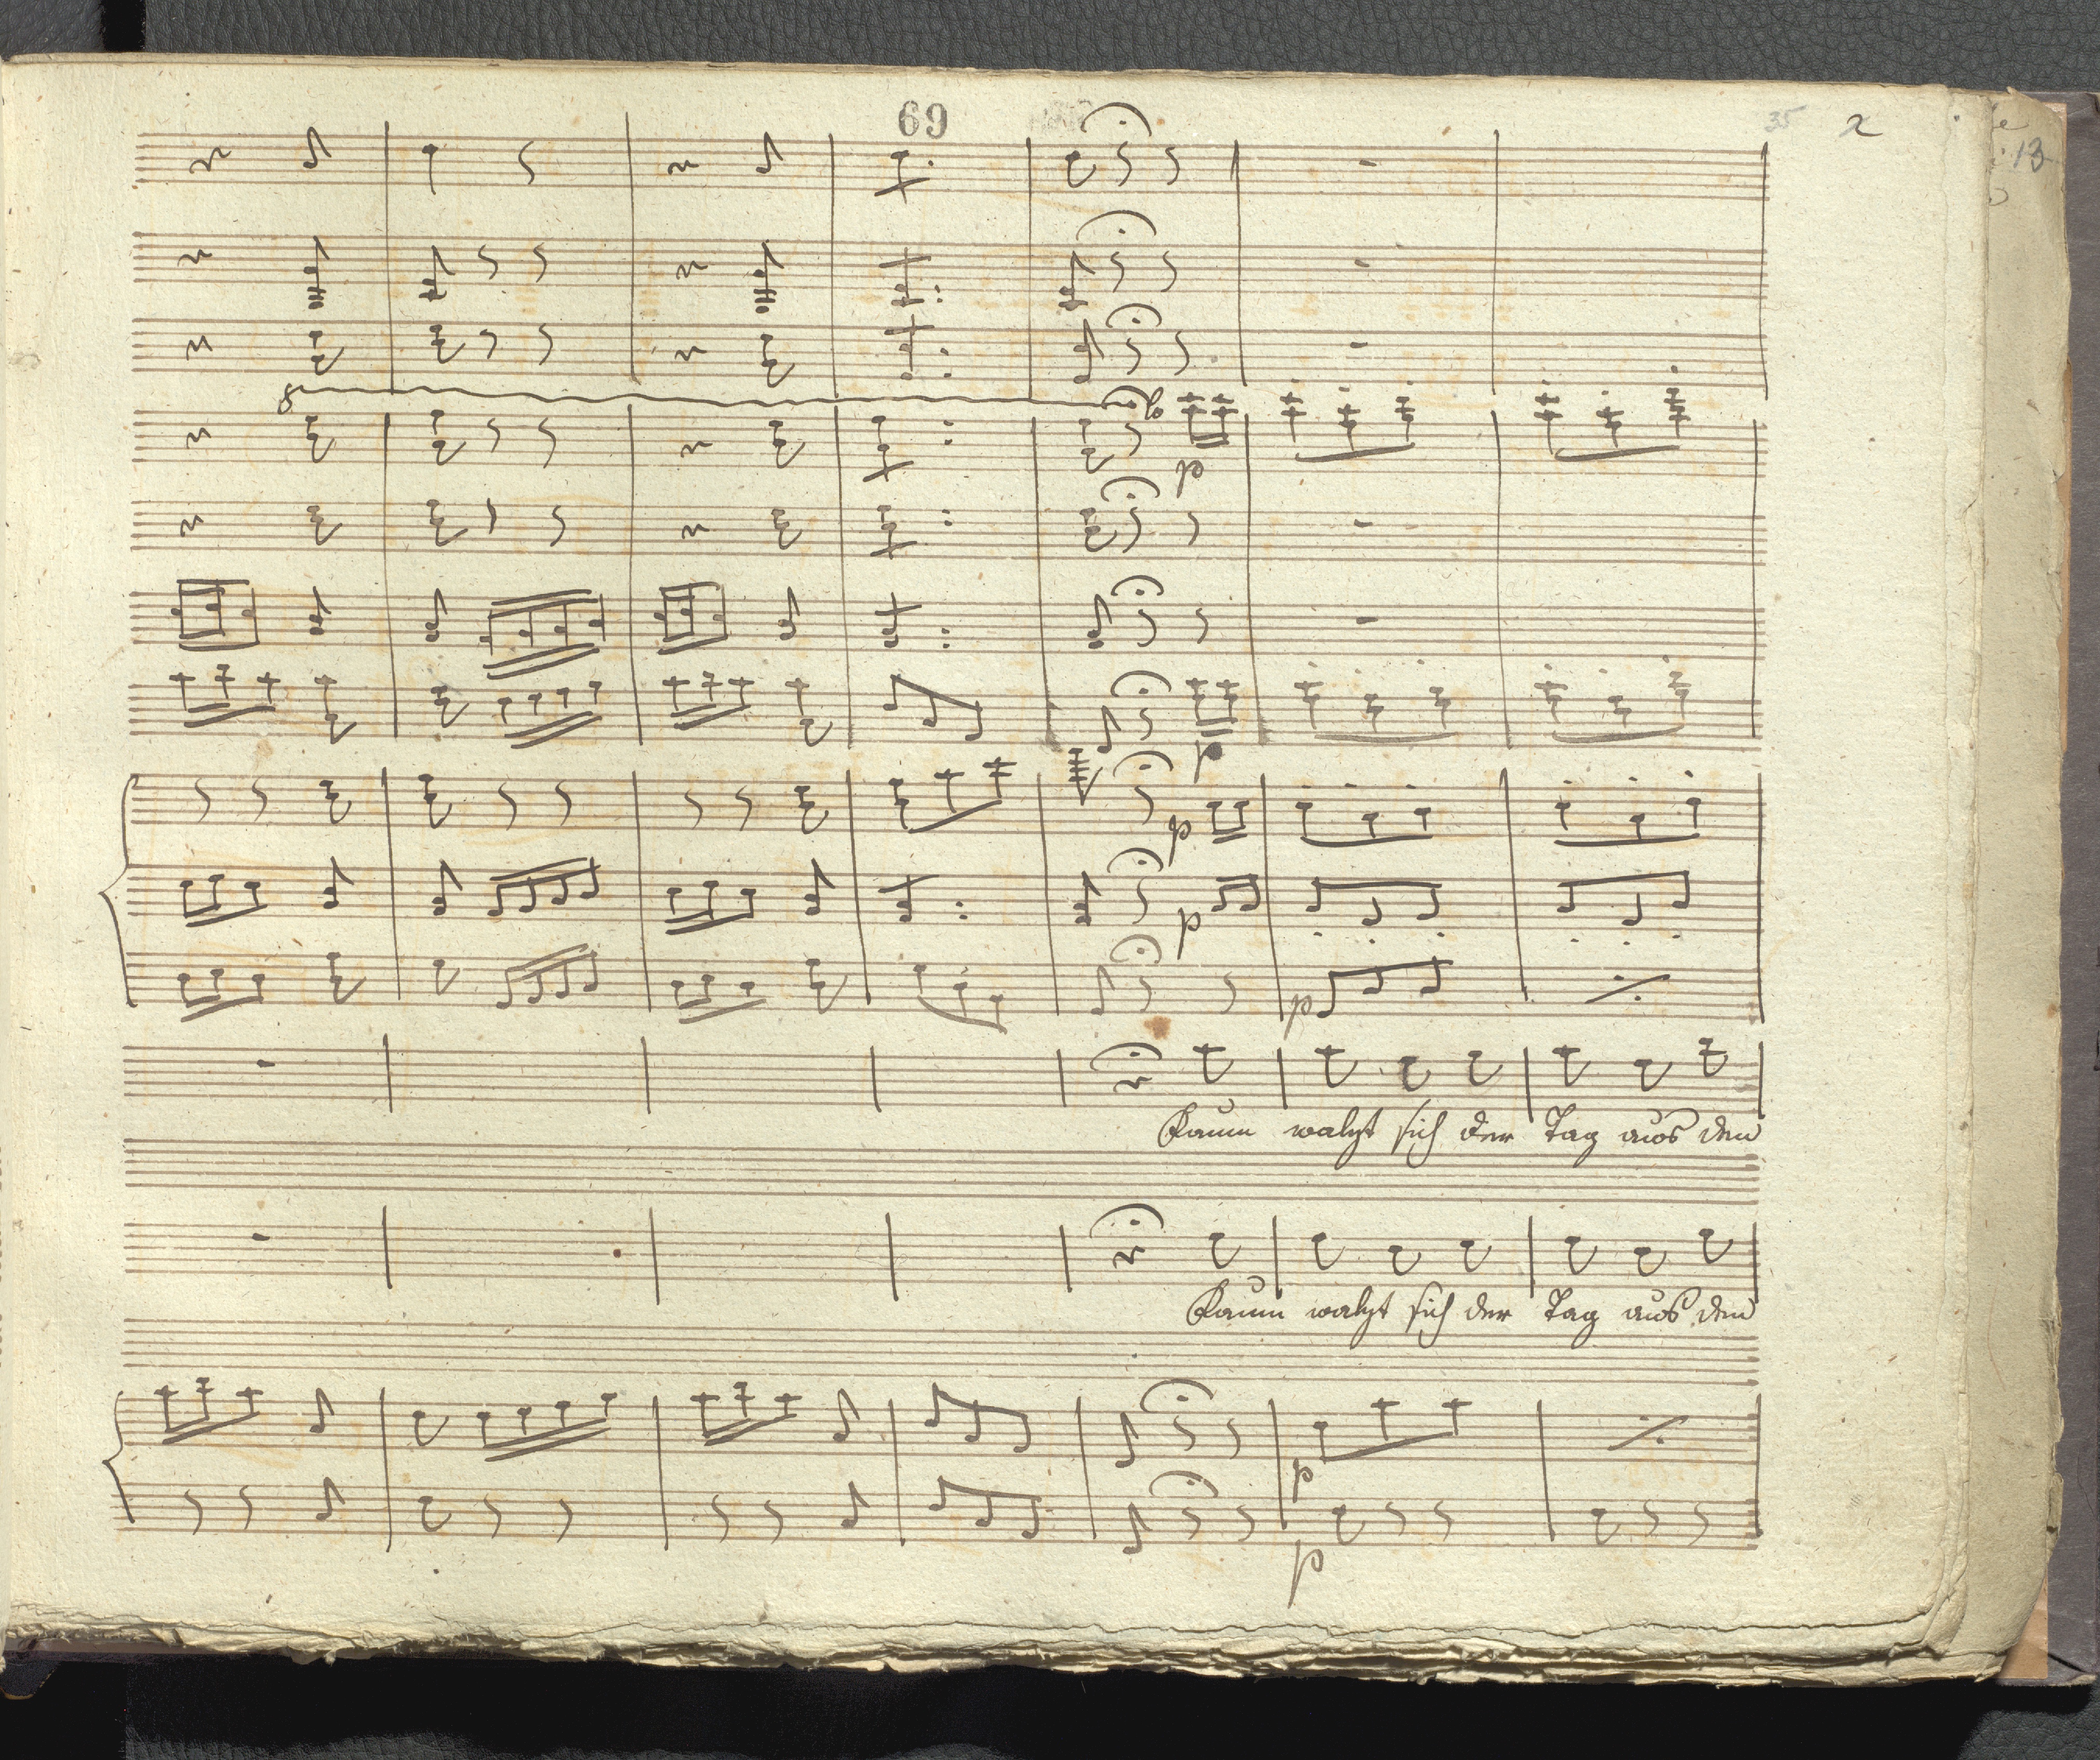 69
35
2
13
8
p
p
p
p
p
Kaum walzt sich der Tag aus den
Kaum walzt sich der Tag aus den
p
p